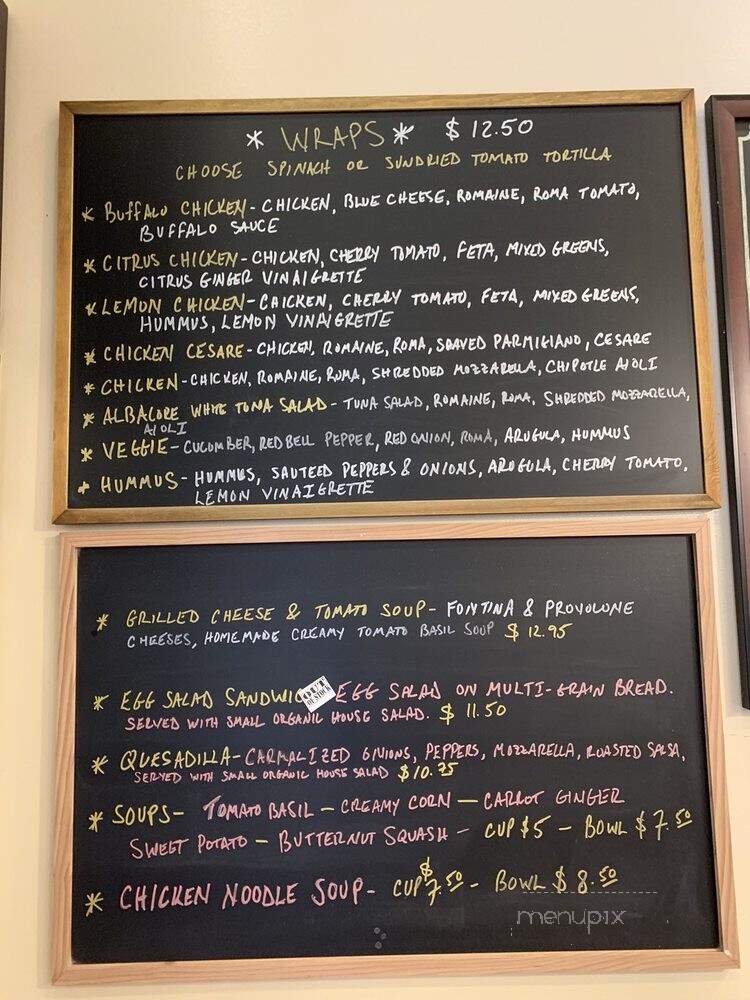 * WRAPS * $12.50
CHOOSE SPINACH OR SUNDRIED TOMATO TORTILLA
* BUFFALO CHICKEN - CHICKEN, BLUE CHEESE, ROMAINE, ROMA TOMATO,
BUFFALO SAUCE
* CITRUS CHICKEN - CHICKEN, CHERRY TOMATO, FETA, MIXED GREENS,
CITRUS GINGER VINAIGRETTE
* LEMON CHICKEN - CHICKEN, CHERRY TOMATO, FETA, MIXED GREENS,
HUMMUS, LEMON VINAIGRETTE
* CHICKEN CESARE - CHICKEN, ROMAINE, ROMA, SHAVED PARMIGIANO, CESARE
* CHICKEN - CHICKEN, ROMAINE, ROMA, SHREDDED MOZZARELLA, CHIPOTLE AIOLI
* ALBACORE WHITE TUNA SALAD - TUNA SALAD, ROMAINE, ROMA, SHREDDED MOZZARELLA,
AIOLI
* VEGGIE - CUCUMBER, RED BELL PEPPER, RED ONION, ROMA, ARUGULA, HUMMUS
* HUMMUS - HUMMUS, SAUTEED PEPPERS & ONIONS, ARUGULA, CHERRY TOMATO,
LEMON VINAIGRETTE
* GRILLED CHEESE & TOMATO SOUP - FONTINA & PROVOLONE
CHEESES, HOMEMADE CREAMY TOMATO BASIL SOUP $12.95
* EGG SALAD SANDWIC OUT OF STOCK EGG SALAD ON MULTI-GRAIN BREAD.
SERVED WITH SMALL ORGANIC HOUSE SALAD. $11.50
* QUESADILLA - CARMALIZED ONIONS, PEPPERS, MOZZARELLA, ROASTED SALSA,
SERVED WITH SMALL ORGANIC HOUSE SALAD $10.75
* SOUPS - TOMATO BASIL - CREAMY CORN - CARROT GINGER
SWEET POTATO - BUTTERNUT SQUASH - CUP $5 - BOWL $7.50
* CHICKEN NOODLE SOUP - CUP $7.50 - BOWL $8.50
menupix